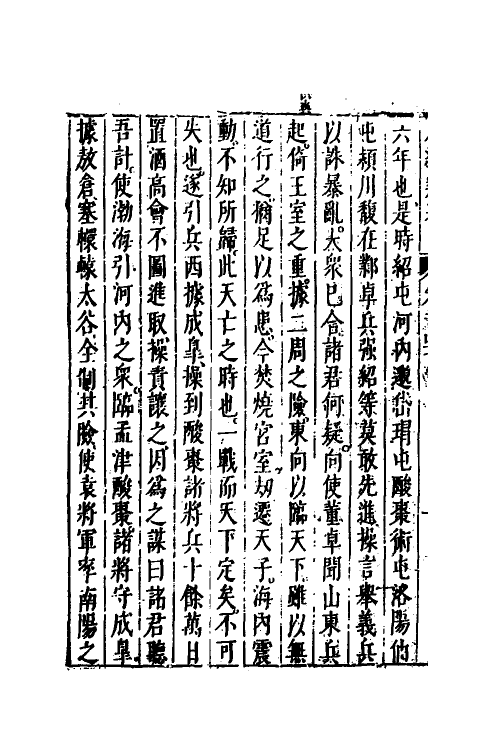 六年也是時紹屯河內邈岱瑁屯酸棗術屯洛陽伷
屯頴川馥在鄴卓兵強紹等莫敢先進操言舉義兵
以誅暴亂大衆巳合諸君何疑向使董卓聞山東兵
起倚王室之重據二周之險東向以臨天下雖以無
道行之猶足以爲患今焚燒宮室刼遷天子海內震
動不知所歸此天亡之時也一戰而天下定矣不可
失也遂引兵西據成臯操到酸棗諸將兵十餘萬日
置酒高會不圖進取操責讓之因爲之謀曰諸君聽
吾計使渤海引河內之衆臨孟津酸棗諸將守成臯
據敖倉塞轘轅太谷全制其險使袁將軍率南陽之